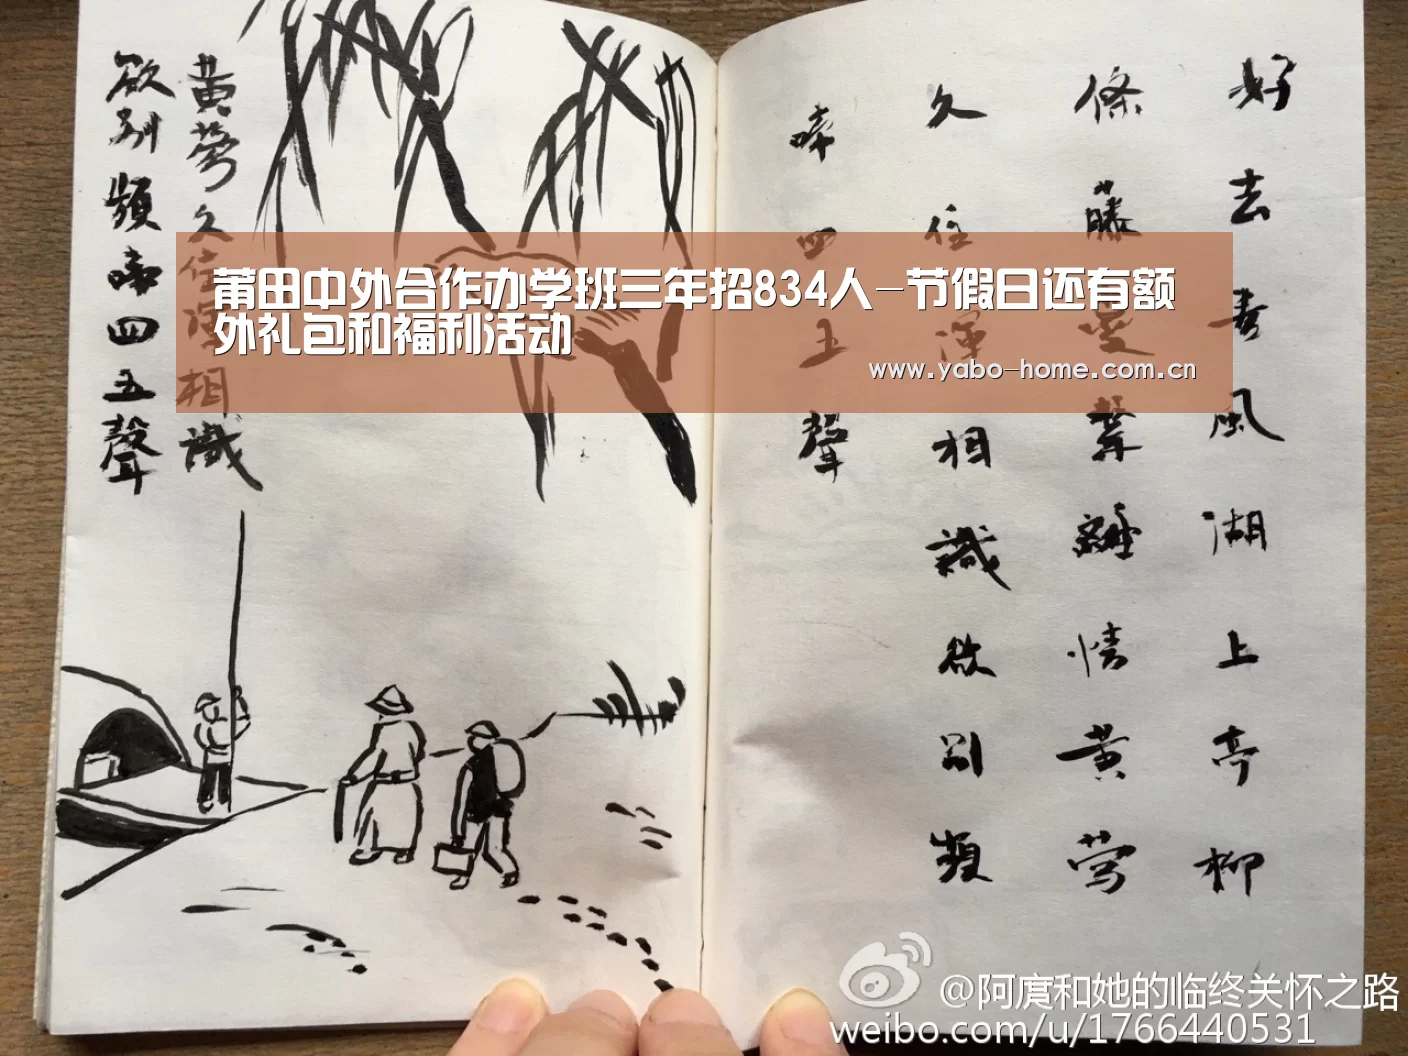 黄莺久住渾相識
欲别頻啼四五聲
莆田中外合作办学班三年招834人-节假日还有额
外礼包和福利活动
www.yabo-home.com.cn
好去春風湖上亭柳
條藤蔓繫離情黄莺
久住渾相識欲別頻
啼四五聲
@阿庹和她的临终关怀之路
weibo.com/u/1766440531